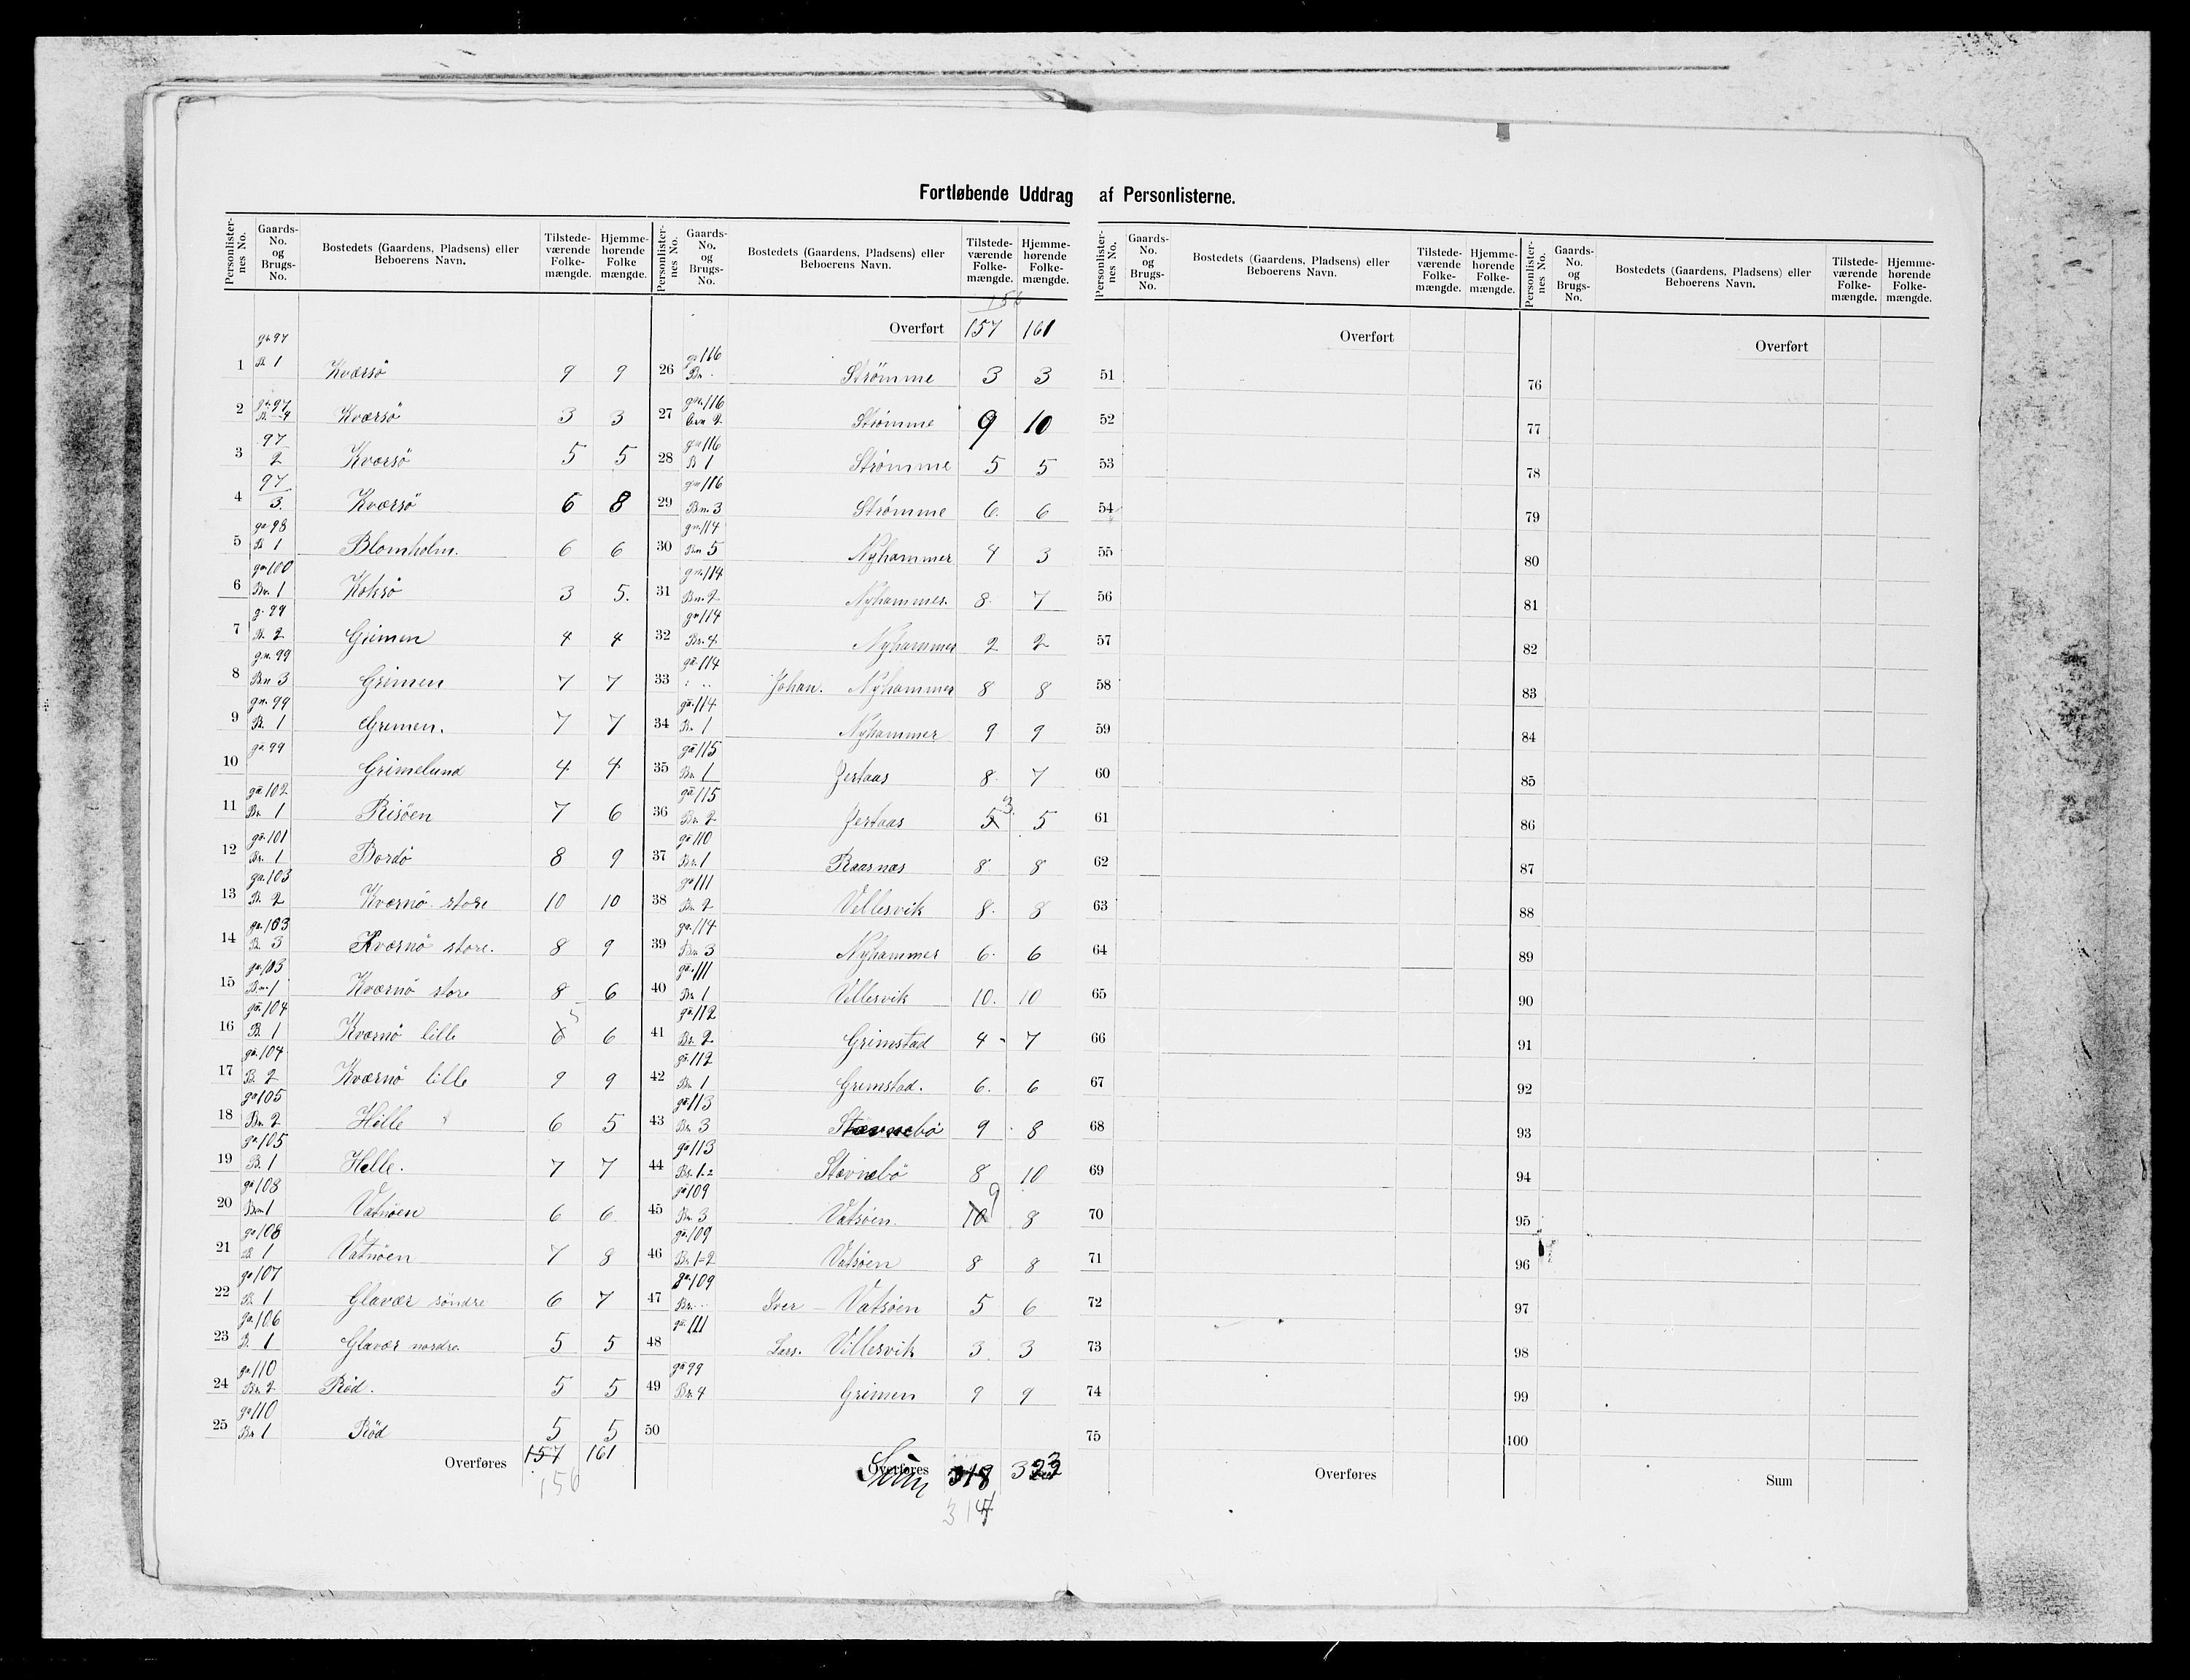 Fortløbende Uddrag af Personlisterne.
Personlister-nes No. | Gaards-No. og Brugs-No. | Bostedets (Gaardens, Pladsens) eller Beboerens Navn. | Tilstede-værende Folke-mængde. | Hjemme-hørende Folke mængde.
1 gn 97 B 1 Kværsö 9 9
2 gn. 97 B. 4 Kværsö 3 3
3 97 2 Kværsö 5 5
4 97 3. Kværsö 6 8
5 gn 98 B 1 Blomholm. 6 6
6 gn 100 Bn. 1 Koksö 3 5.
7 g. 99 B. 2 Grimen 4 4
8 g.n. 99 Bn 3 Grimen 7 7
9 gn. 99 B. 1 Grimen. 7 7
10 gn. 99 Grimelund 4 4
11 gn 102 Bn. 1 Risöen 7 6
12 gn. 101 Bn. 1 Bordö 8 9
13 gn. 103 B. 2 Kværnö store 10 10
14 gn. 103 B. 3 Kværnö store. 8 9
15 gn. 103 B.n. 1 Kværnö store 8 6
16 gn. 104 B. 1 Kværnö lille 6 5 6
17 gn. 104 B. 2 Kværnö lille 9 9
18 gn 105 Bn. 2 Hille 6 5
19 gn. 105 B. 1 Helle. 7 7
20 gn 108 Bn 1 Vatnöen 6 6
21 gn 108 B. 1 Vatnöen 7 8
22 gn 107 B. 1 Glavær söndre 6 7
23 gn. 106 B. 1 Glavær nordre. 5 5
24 gn 110 Bn. 2 Röd. 5 5
25 gn 110 Bn 1 Röd 5 5
Overføres 157 161
156
Personlister-nes No. | Gaards-No. og Brugs-No. | Bostedets (Gaardens, Pladsens) eller Beboerens Navn. | Tilstede-værende Folke-mængde. | Hjemme-hørende Folke-mængde.
156
Overført 157 161
26 gn 116 Bn . Strömme 3 3
27 gn. 116 Strömme 9 10
28 gn 116 B 1 Strömme 5 5
29 gn 116 Bn. 3 Strömme 6. 6
30 gn. 114 Bn 5 Nyhammer 4 3
31 gn. 114 Bn. 2 Nyhammer. 8. 7
32 gn 114 Bn. 4 Nyhammer 2 2
33 gn. 114 Johan. Nyhammer 8 8
34 gn. 114 Bn. 1 Nyhammer 9 9
35 gn 115 Bn. 1 Jertaas 8. 7
36 gn 115 Bn. 2 Jertaas 5 3. 5
37 gn 110 Bn. 1 Raasnæs 8 8
38 gn 111 Bn. 2 Vellesvik 8. 8
39 gn. 114 Bn. 3 Nyhammer 6. 6
40 gn. 111 Bn. 1 Vellesvik 10. 10
41 gn. 112 Bn. 2 Grimstad 4 - 7
42 gn. 112 Bn. 1 Grimstad. 6. 6
43 gn 113 Bn. 3 Stævnebö 9 . 8
44 gn 113 Bn. 1-2 Stævnebö 8 10
45 gn 109 Bn. 3 Vatsöen 10 9 8
46 gn. 109 Bn 1-2 Vatsöen 8 8
47 gn. 109 Bn. ... Iver - Vatsöen 5 6
48 gn. 111 Lars. Villesvik 3 3
49 gn 99 Bn. 4 Grimen 9 9
50
Overføres Sum 318 323
314
Personlister-nes No. | Gaards-No. og Brugs-No. | Bostedets (Gaardens, Pladsens) eller Beboerens Navn. | Tilstede-værende Folke-mængde. | Hjemme-hørende Folke-mængde.
Overført
51
52
53
54
55
56
57
58
59
60
61
62
63
64
65
66
67
68
69
70
71
72
73
74
75
Overføres
Personlister-nes No. | Gaards-No. og Brugs-No. | Bostedets (Gaardens, Pladsens) eller Beboerens Navn. | Tilstede-værende Folke-mængde. | Hjemme-hørende Folke-mængde.
Overført
76
77
78
79
80
81
82
83
84
85
86
87
88
89
90
91
92
93
94
95
96
97
98
99
100
Sum